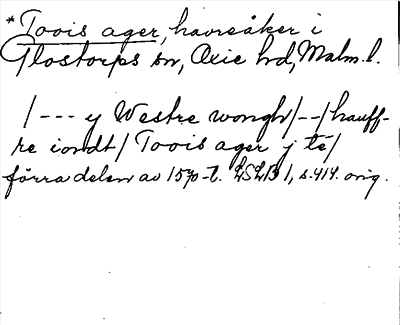 *Toois ager, havreåker i
Glostorps sn, Oxie hd, Malm. l.
/--- y Westre wongh/--/hauff-
re iordt/ Toois ager j té/
förra delen av 1570-t. LSLB 1, s. 414. orig.